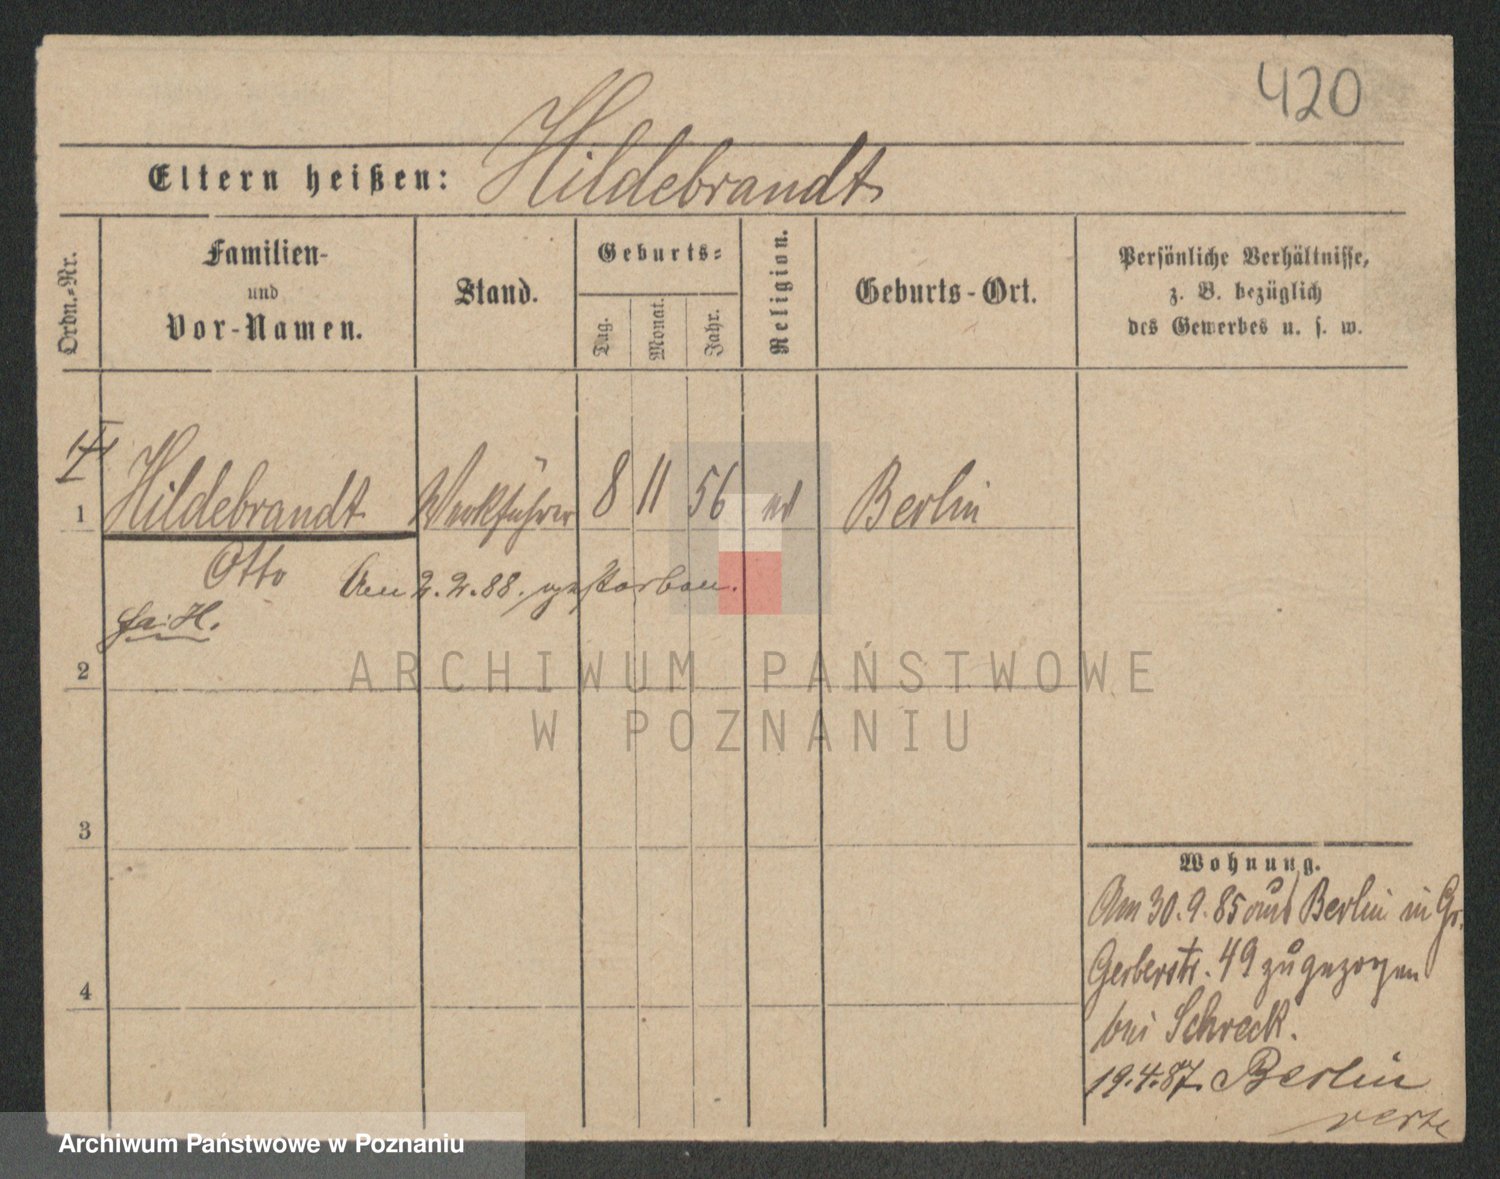 420
Eltern heißen: Hildebrandt
Ordn.-Nr.
Familien-
und
Vor-Namen.
Stand.
Geburts-
Tag.
Monat.
Jahr.
Religion.
Geburts-Ort.
Persönliche Verhältnisse,
z. B. bezüglich
des Gewerbes u. s. w.
1 Hildebrandt Werkführer 8 11 56 Berlin
Otto Am 2.2.88. gestorben.
2
ARCHIWUM PAŃSTWOWE
W POZNANIU
3
4
Wohnung.
Am 30.9.85 aus Berlin in Gr.
Gerberstr. 49 zugezogen
bei Schreck.
19.4.87. Berlin
verte
Archiwum Państwowe w Poznaniu